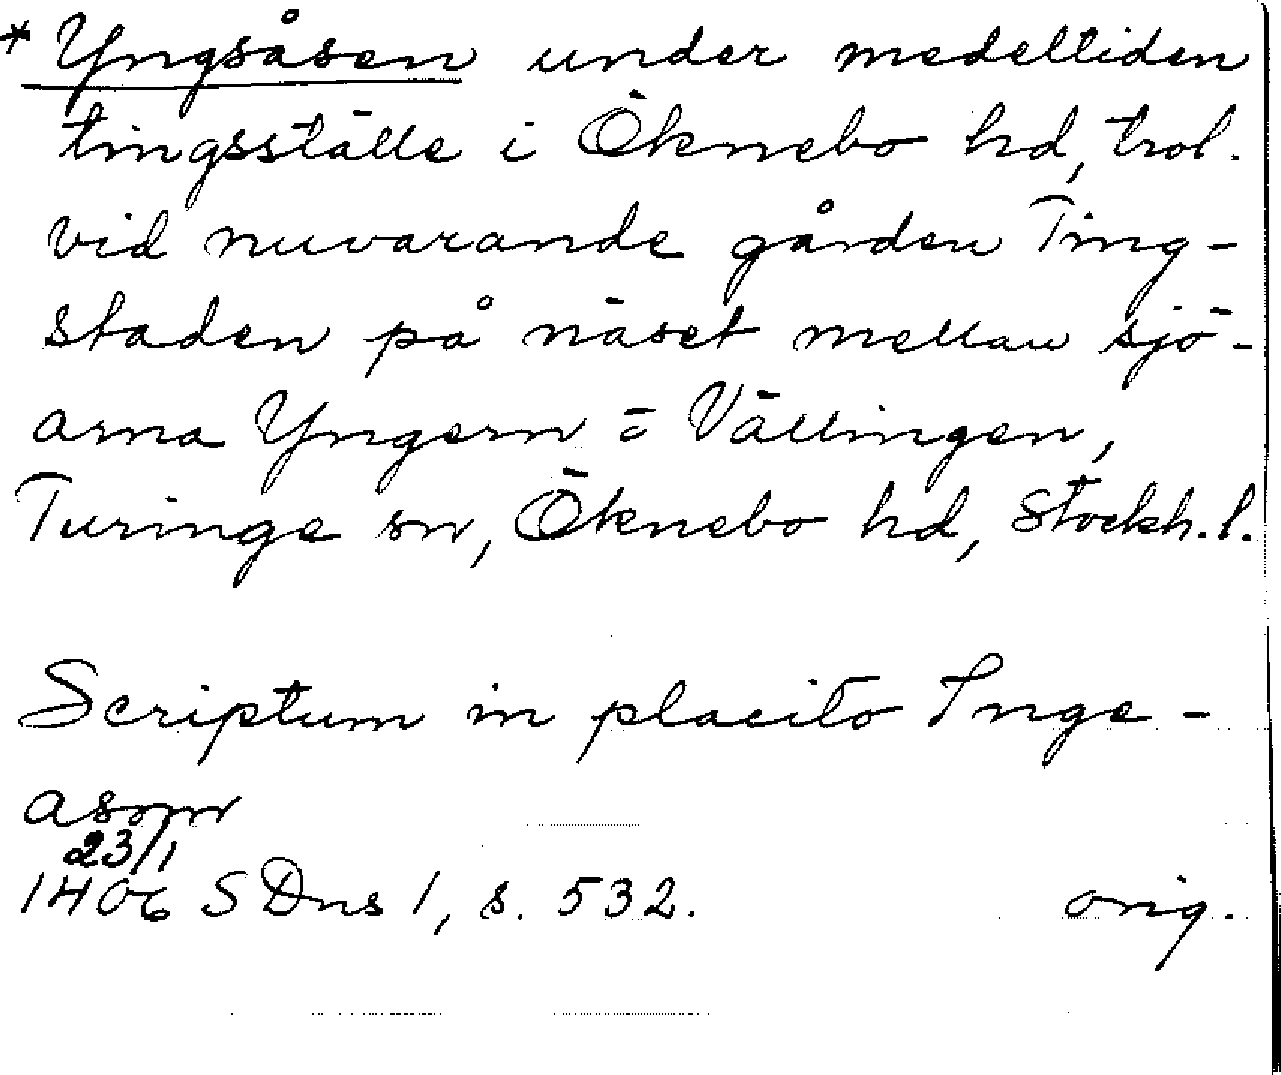 * Yngsåsen under medeltiden
tingsställe i Öknebo hd, trol.
vid nuvarande gården Ting-
staden på näset mellan sjö-
arna Yngern o Vällingen,
Turinge sn, Öknebo hd, Stockh. l.
Scriptum in placito Inge-
asom
23/1
1406 SDns 1, s. 532. orig.